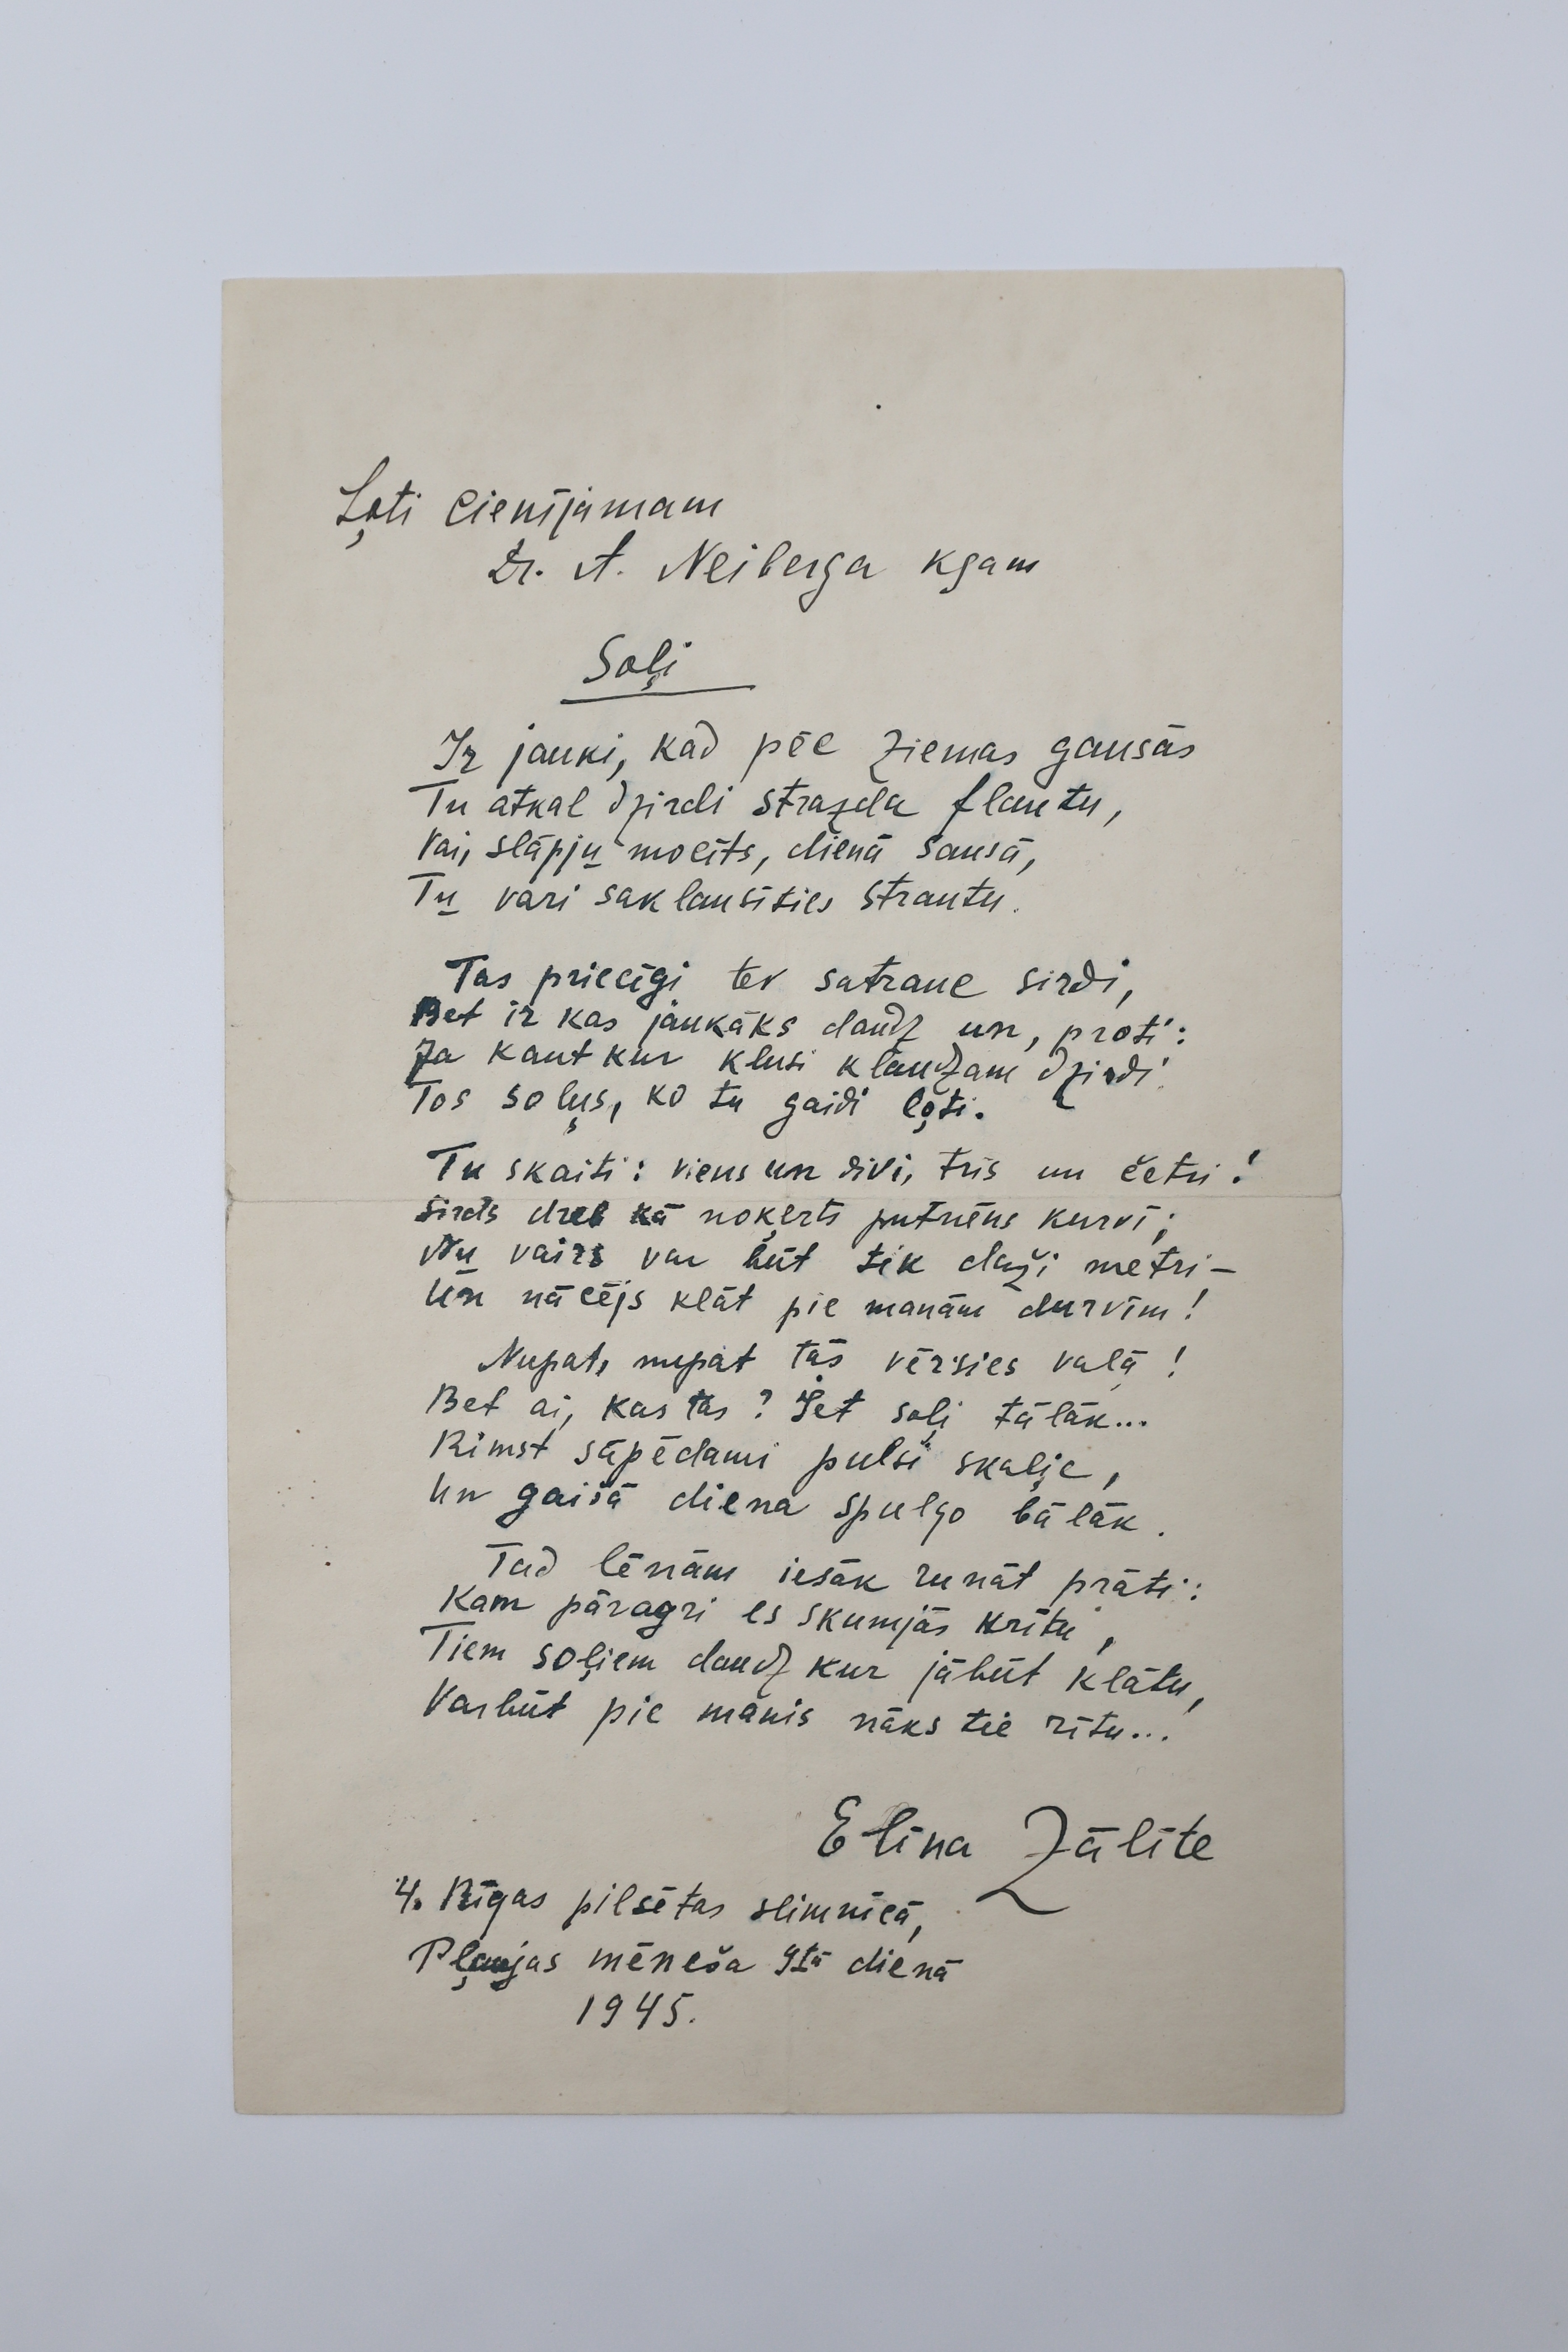 Ļoti cienījamam
Dr. A. Neiberga kgam
Soļi
Ir jauki, kad pēc ziemas gausās
Tu atkal dzirdi strazda flautu,
Vai, slāpju mocīts, dienā sausā,
Tu vari saklausīties strautu.
Tas priecīgi tev satrauc sirdi,
Bet ir kas jaukāks daudz un, proti:
Ja kaut kur klusi klaudzam dzirdi
Tos soļus, ko tu gaidi ļoti.
Tu skaiti: viens un divi, trīs un četri!
Sirds dreb kā noķerts putnēns kurvī;
Nu vairs var būt tik daži metri –
Un nācējs klāt pie manām durvīm!
Nupat, nupat tās vērsies vaļā!
Bet ai, kas tas? Iet soļi tālāk...
Rimst sāpēdami pulsi skaļie,
Un gaišā diena spulgo bālāk.
Tad lēnām iesāk runāt prāti:
Kam pāragri es skumjās kritu,
Tiem soļiem daudz kur jābūt klātu,
Varbūt pie manis nāks tie rītu...
Elīna Zālīte
4. Rīgas pilsētas slimnīcā,
Pļaujas mēneša 9tā dienā
1945.